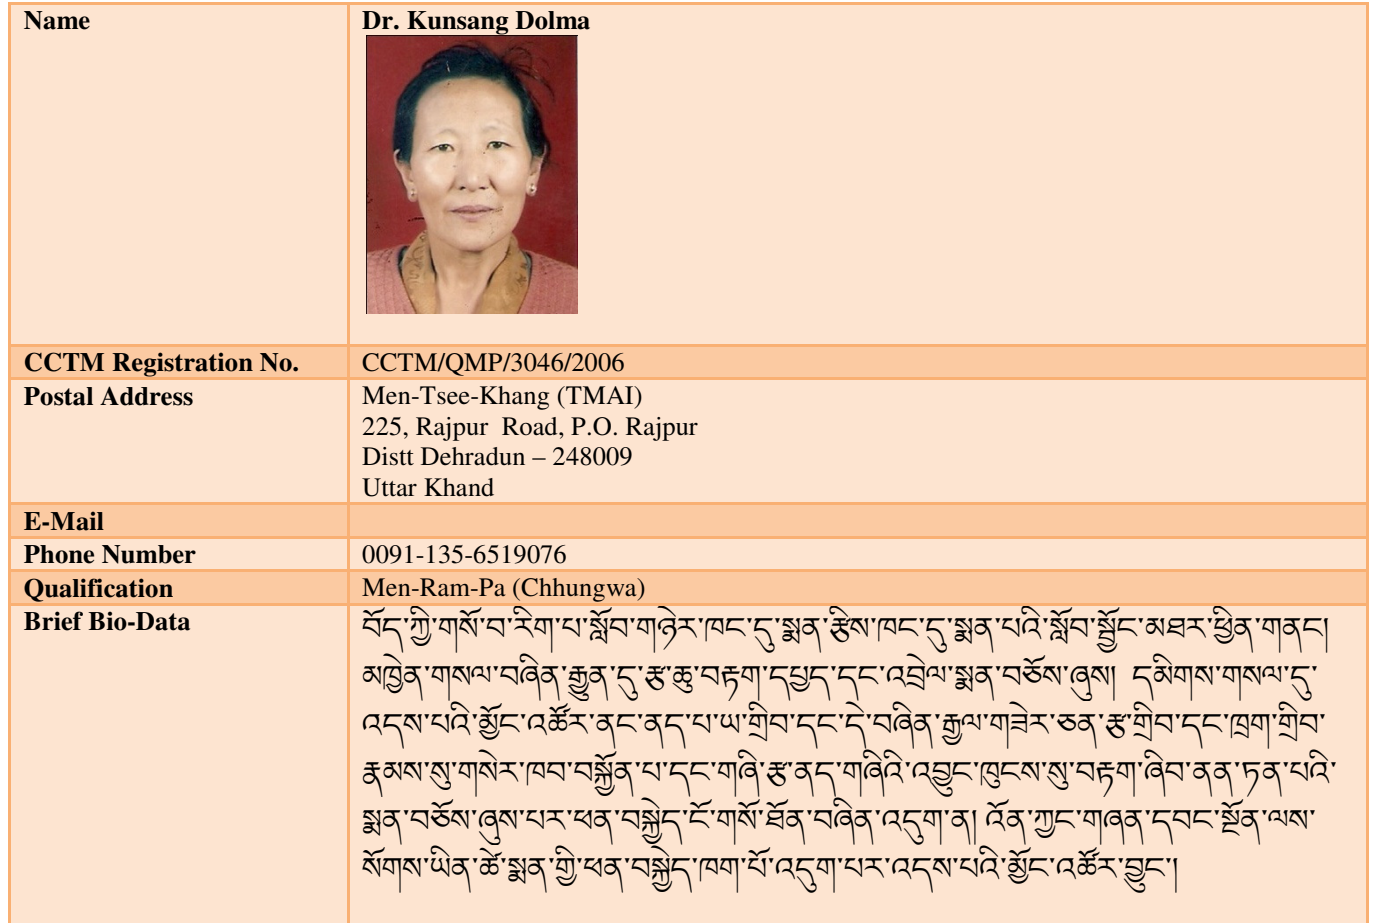 Name
Dr. Kunsang Dolma
CCTM Registration No.
CCTM/QMP/3046/2006
Postal Address
Men-Tsee-Khang (TMAI)
225, Rajpur Road, P.O. Rajpur
Distt Dehradun – 248009
Uttar Khand
E-Mail
Phone Number
0091-135-6519076
Qualification
Men-Ram-Pa (Chhungwa)
Brief Bio-Data
བོད་ཀྱི་གསོ་བ་རིག་པ་སློབ་གཉེར་ཁང་དུ་སྨན་རྩིས་ཁང་དུ་སྨན་པའི་སློབ་སྦྱོང་མཐར་ཕྱིན་གནང།
མཁྱེན་གསལ་བཞིན་རྒྱུན་དུ་རྩ་ཆུ་བརྟག་དཔྱད་དང་འབྲེལ་སྨན་བཅོས་ཞུས། དམིགས་གསལ་དུ་
འདས་པའི་མྱོང་འཚོར་ནང་ནད་པ་ཡ་གྲིབ་དང་དེ་བཞིན་རྒྱལ་གཟེར་ཅན་རྩ་གྲིབ་དང་ཁྲག་གྲིབ་
རྣམས་སུ་གསེར་ཁབ་བསྐྱོན་པ་དང་གཞི་རྩ་ནད་གཞིའི་འབྱུང་ཁུངས་སུ་བརྟག་ཞིབ་ནན་ཏན་པའི་
སྨན་བཅོས་ཞུས་པར་ཕན་བསྐྱེད་ངོ་གསོ་ཐོན་བཞིན་འདུག་ན། འོན་ཀྱང་གཞན་དབང་སྔོན་ལས་
སོགས་ཡིན་ཚེ་སྨན་གྱི་ཕན་བསྐྱེད་ཁག་པོ་འདུག་པར་འདས་པའི་མྱོང་འཚོར་བྱུང་།